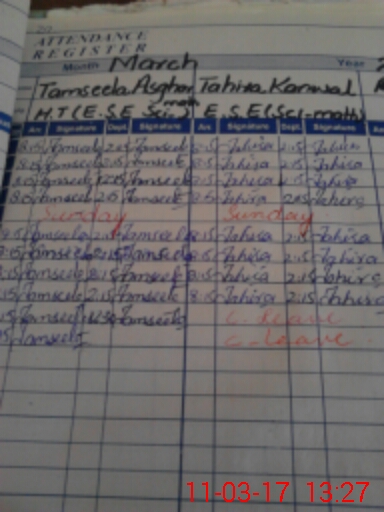 ATTENDANCE
REGISTER
Month March Year
Tamseela Asghar Tahira Kanwal
H.T (E.S.E Sci-math) E.S.E (Sci-math)
Arr. Signature Dept. Signature Arr. Signature Dept. Signature
8:15 Tamseela 2:15 Tamseela 8:15 Tahira 2:15 Tahira
8:15 Tamseela 2:15 Tamseela 8:15 Tahira 2:15 Tahira
8:15 Tamseela 12:15 Tamseela 8:15 Tahira 2:15 Tahira
8:15 Tamseela 2:15 Tamseela 8:15 Tahira 2:15 Tahira
Sunday Sunday
8:15 Tamseela 2:15 Tamseela 8:15 Tahira 2:15 Tahira
8:15 Tamseela 2:15 Tamseela 8:15 Tahira 2:15 Tahira
8:15 Tamseela 2:15 Tamseela 8:15 Tahira 2:15 Tahira
8:15 Tamseela 2:15 Tamseela 8:15 Tahira 2:15 Tahira
Tamseela Tamseela C. Leave
Tamseela C. Leave
11-03-17 13:27